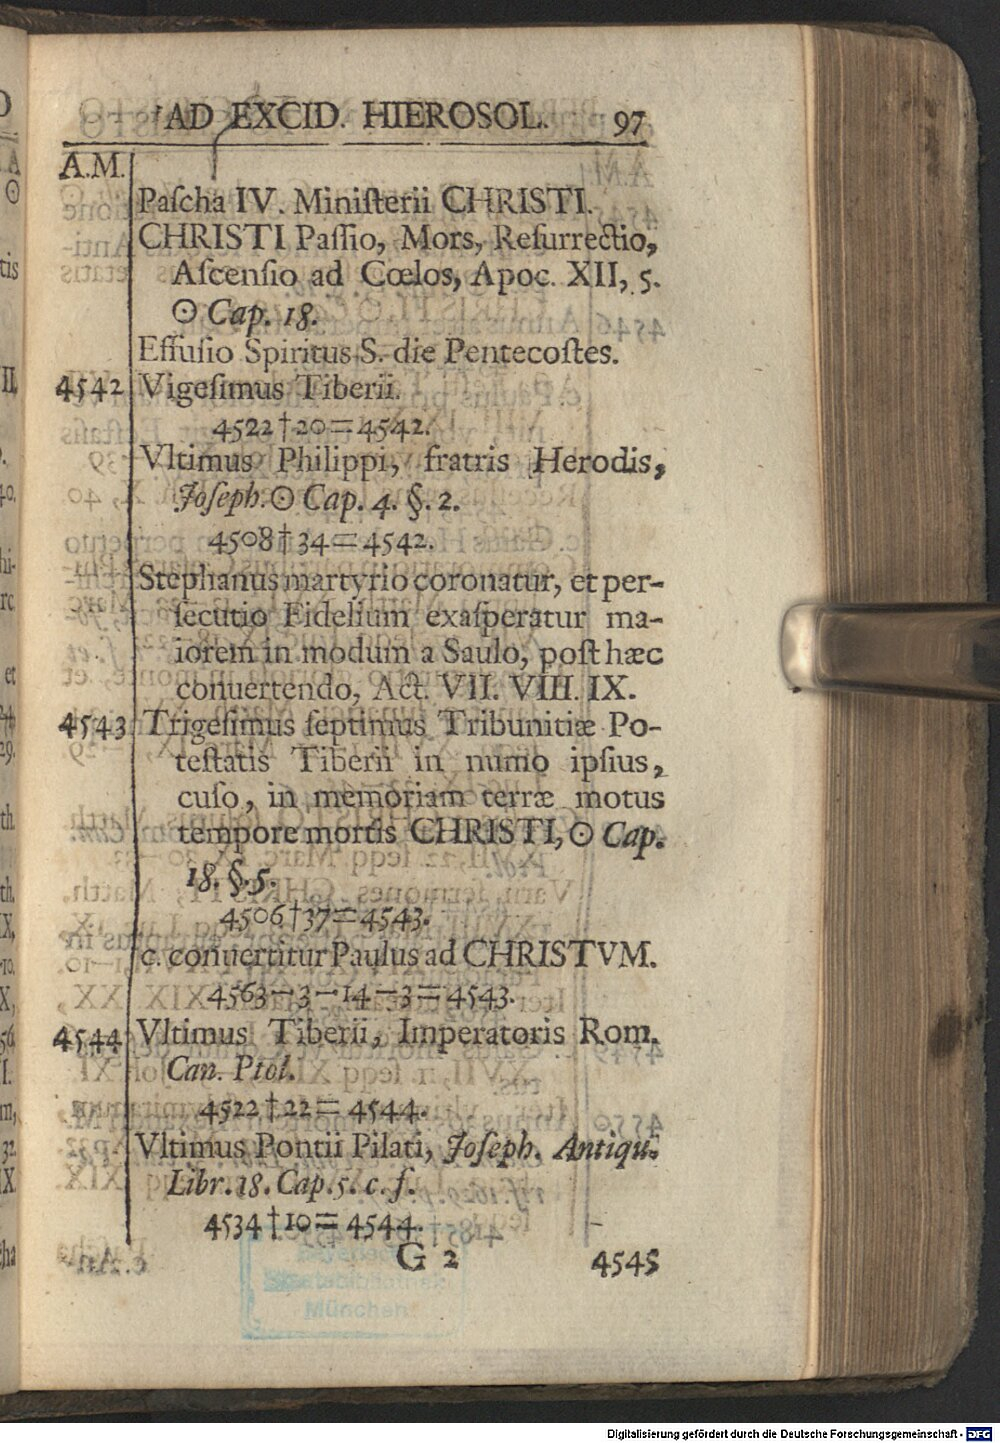 AD EXCID. HIEROSOL. 97
A.M.
Paſcha IV. Miniſterii CHRISTI.
CHRISTI Paſſio, Mors, Reſurrectio,
Aſcenſio ad Cœlos, Apoc. XII, 5.
☉ Cap. 18.
Effuſio Spiritus S. die Pentecoſtes.
4542 Vigeſimus Tiberii.
4522†20=4542.
Vltimus Philippi, fratris Herodis,
Joſeph. ☉ Cap. 4. §. 2.
4508†34=4542.
Stephanus martyrio coronatur, et per-
ſecutio Fidelium exaſperatur ma-
iorem in modum a Saulo, poſt hæc
conuertendo, Act. VII. VIII. IX.
4543 Trigeſimus ſeptimus Tribunitiæ Po-
teſtatis Tiberii in numo ipſius,
cuſo, in memoriam terræ motus
tempore mortis CHRISTI, ☉ Cap.
18. §. 5.
4506†37=4543.
c. conuertitur Paulus ad CHRISTVM.
4563−3−14−3=4543.
4544 Vltimus Tiberii, Imperatoris Rom.
Can. Ptol.
4522†22=4544.
Vltimus Pontii Pilati, Joſeph. Antiqu.
Libr. 18. Cap. 5. c. f.
4534†10=4544.
G 2 4545
Bayerische
Staatsbibliothek
München
Digitalisierung gefördert durch die Deutsche Forschungsgemeinschaft - DFG